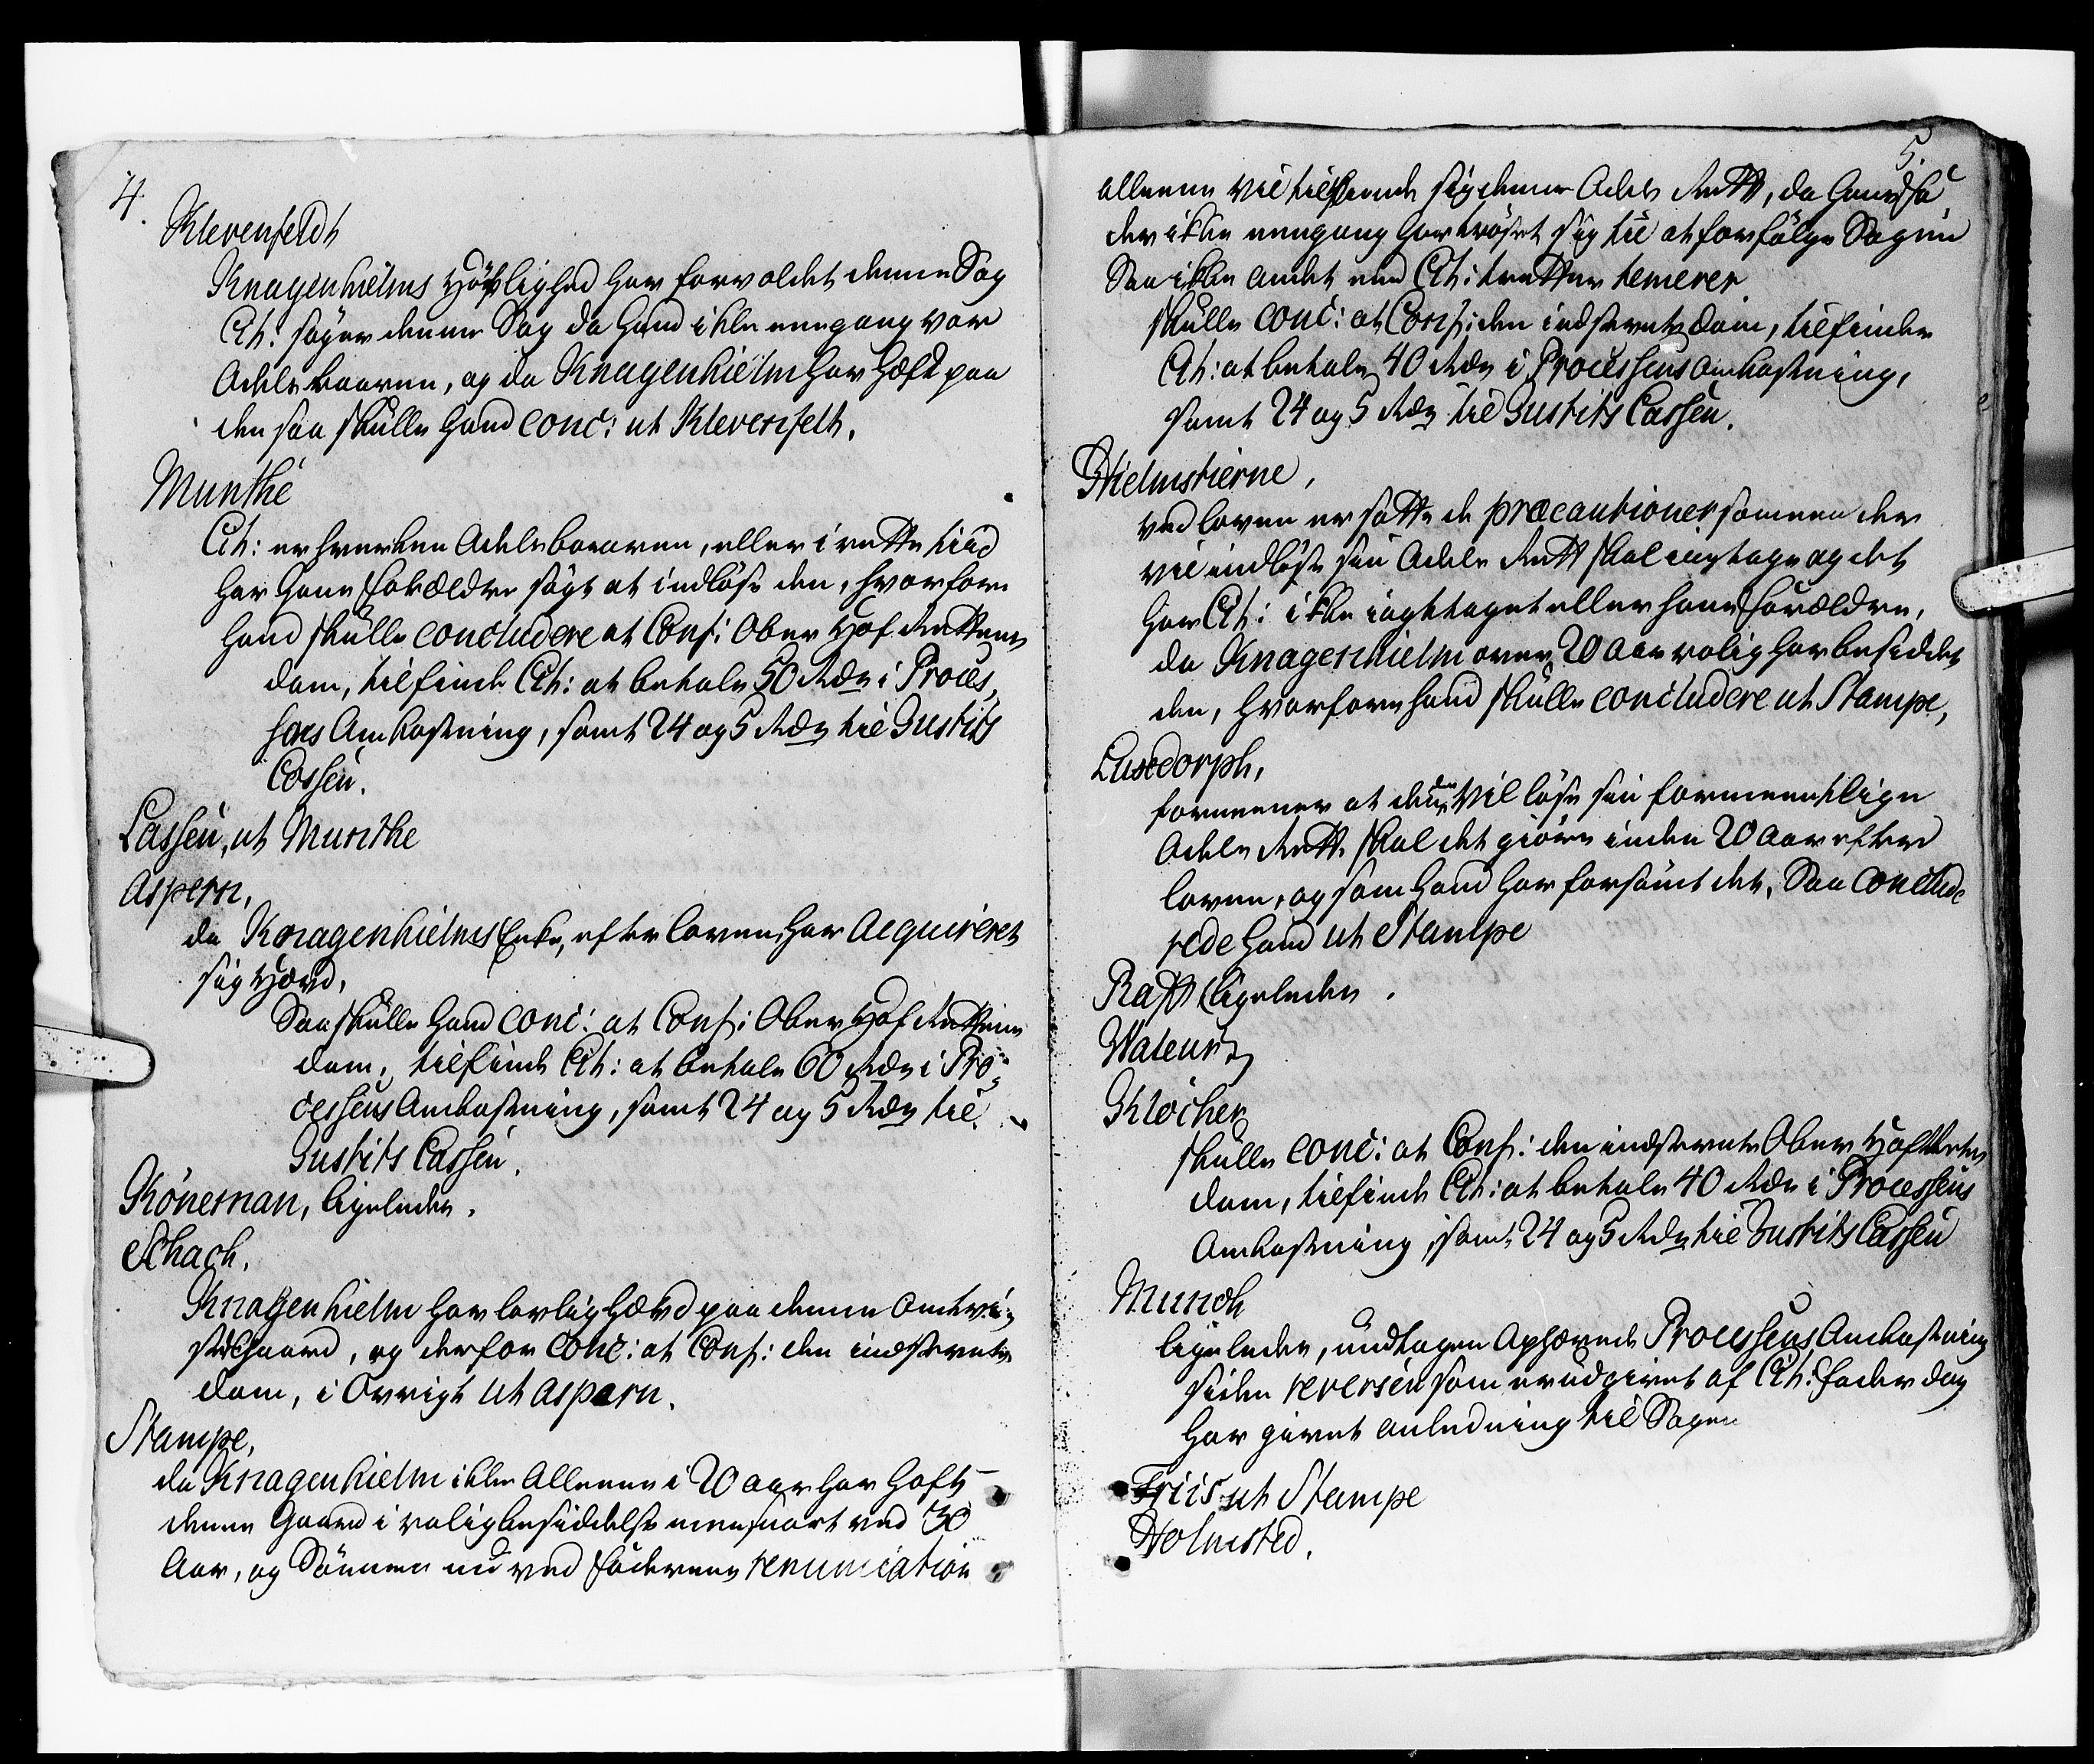 4.
Klevenfeldt
Knagenhielms Höflighed har forvoldet denne Sag
Cit: søger denne Sag da hand ikke eengang var
Odelsbaaren, og da Knagenhielm har Hæft paa
den saa skulle hand conc: ut Klevenfelt.
Munthe
Cit: er hverken Odelsbaaren, eller i rette tiid
har hans Forældre søgt at indløse den, hvorfore
hand skulle concludere at Conf: Ober Hof Rettens
dom, tilfinde Cit: at betale 50 Rdr i Proces,
sens Omkostning, samt 24 og 5 Rdr til Justits
Cassen.
Lassen, ut Munthe
Aspern,
da Knagenhielms Enke, efter loven, har Acquireret
sig Hævd,
Saa skulle hand conc: at Conf: Ober Hof Rettens
dom, tilfinde Cit: at betale 60 Rdr i Pro,
cessens Omkostning, samt 24 og 5 Rdr til
Justits Cassen.
Köneman, ligeledes.
Schach.
Knagenhielm har lovlig Hævd paa denne omtvi,
stede Gaard, og derfor conc: at Conf: den indstevnte
dom, i Øvrigt ut Aspern.
Stampe,
da Knagenhielm ikke Alleene i 20 aar har haft
denne Gaard i rolig besiddelse men snart ved 30
Aar, og Sønnen nu ved Faderens renunciation
5.
alleene vil tilsende sig denne Odels Rett, da hans Fa
der ikke eengang har trøstet sig til at forfølge Sagen
Saa ikke andet end Cit: trætter temerer
skulle conc: at Conf: den indstevnte dom, tilfinde
Cit: at betale 40 Rdr i Processens Omkostning,
samt 24 og 5 Rdr til Justits Cassen.
Hielmstierne,
ved loven er satte de præcautioner som een der
vil indløse sin Odels Rett skal iagttage og det
har Cit: ikke iagttaget eller hans Forældre,
da Knagenhielm over 20 aar rolig har besiddet
den, hvorfore hand skulle concludere ut Stampe,
Luxdorph,
formeener at den vil løse sin formeentlige
Odels Rett skal det giøre inden 20 Aar efter
loven, og som hand har forsømt det, Saa conclude
rede hand ut Stampe
Rafft ligeledes.
Wateur
Klöcher
skulle conc: at Conf: den indstevnte Ober Hof Retts
dom, tilfinde Cit: at betale 40 Rdr i Processens
Omkostning, samt 24 og 5 Rdr til Justits Cassen
Munch
ligeledes, undtagen Ophævede Processens Omkostning
siden reversen som er udgivet af Cit: Fader dog
har givet anledning til Sagen
Friis ut Stampe
Holmsted.